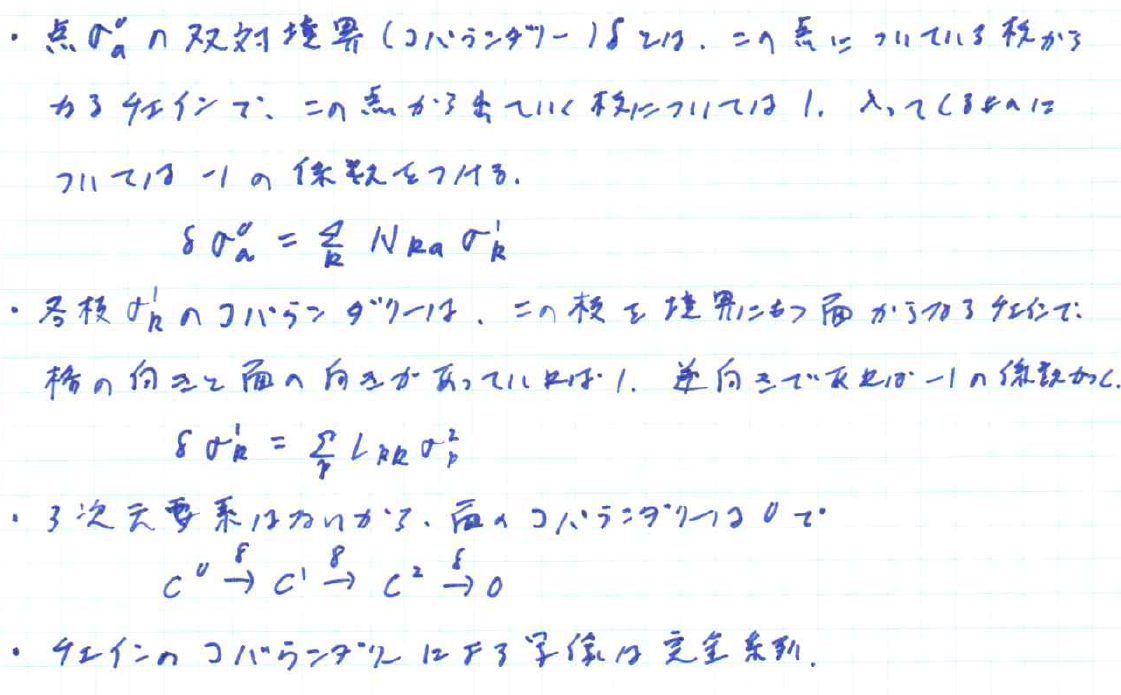 ・点σ⁰ₐの双対境界(コバウンダリー)δとは、この点についている枝から
なるチェインで、この点から出ていく枝については1、入ってくるものに
ついては -1の係数をつける。
δσ⁰ₐ = Σₖ Nₖₐ σ¹ₖ
・各枝σ¹ₖのコバウンダリーは、この枝を境界にもつ面からなるチェインで
枝の向きと面の向きがあっていれば1、逆向きであれば -1の係数がつく。
δσ¹ₖ = Σₚ Lₚₖ σ²ₚ
・3次元要素はないから、面のコバウンダリーは0で
C⁰ →(δ) C¹ →(δ) C² →(δ) 0
・チェインのコバウンダリーによる写像は完全系列。